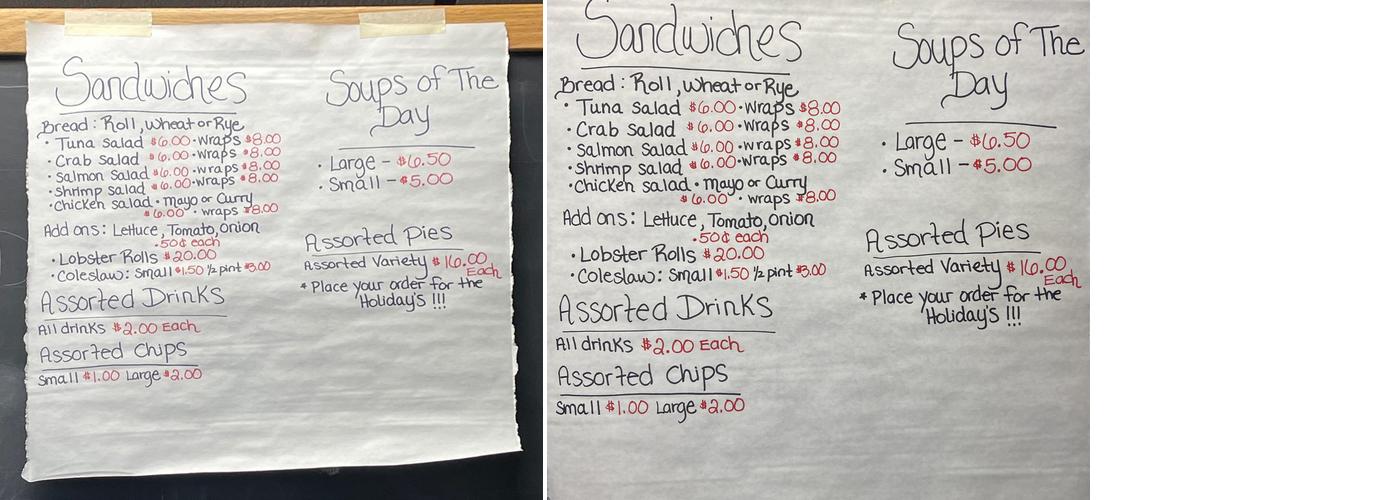 Sandwiches
Bread: Roll, Wheat or Rye
• Tuna Salad $6.00 • wraps $8.00
• Crab Salad $6.00 • wraps $8.00
• Salmon Salad $6.00 • wraps $8.00
• Shrimp Salad $6.00 • wraps $8.00
• Chicken Salad • mayo or Curry
$6.00 • wraps $8.00
Add ons: Lettuce, Tomato, onion
.50¢ each
• Lobster Rolls $20.00
• Coleslaw: Small $1.50 1/2 pint $3.00
Assorted Drinks
All drinks $2.00 Each
Assorted Chips
Small $1.00 Large $2.00
Soups of The
Day
• Large - $6.50
• Small - $5.00
Assorted Pies
Assorted Variety $16.00
Each
* Place your order for the
Holiday's !!!
Sandwiches
Bread: Roll, Wheat or Rye
• Tuna Salad $6.00 • wraps $8.00
• Crab Salad $6.00 • wraps $8.00
• Salmon Salad $6.00 • wraps $8.00
• Shrimp Salad $6.00 • wraps $8.00
• Chicken Salad • mayo or Curry
$6.00 • wraps $8.00
Add ons: Lettuce, Tomato, onion
.50¢ each
• Lobster Rolls $20.00
• Coleslaw: Small $1.50 1/2 pint $3.00
Assorted Drinks
All drinks $2.00 Each
Assorted Chips
Small $1.00 Large $2.00
Soups of The
Day
• Large - $6.50
• Small - $5.00
Assorted Pies
Assorted Variety $16.00
Each
* Place your order for the
Holiday's !!!